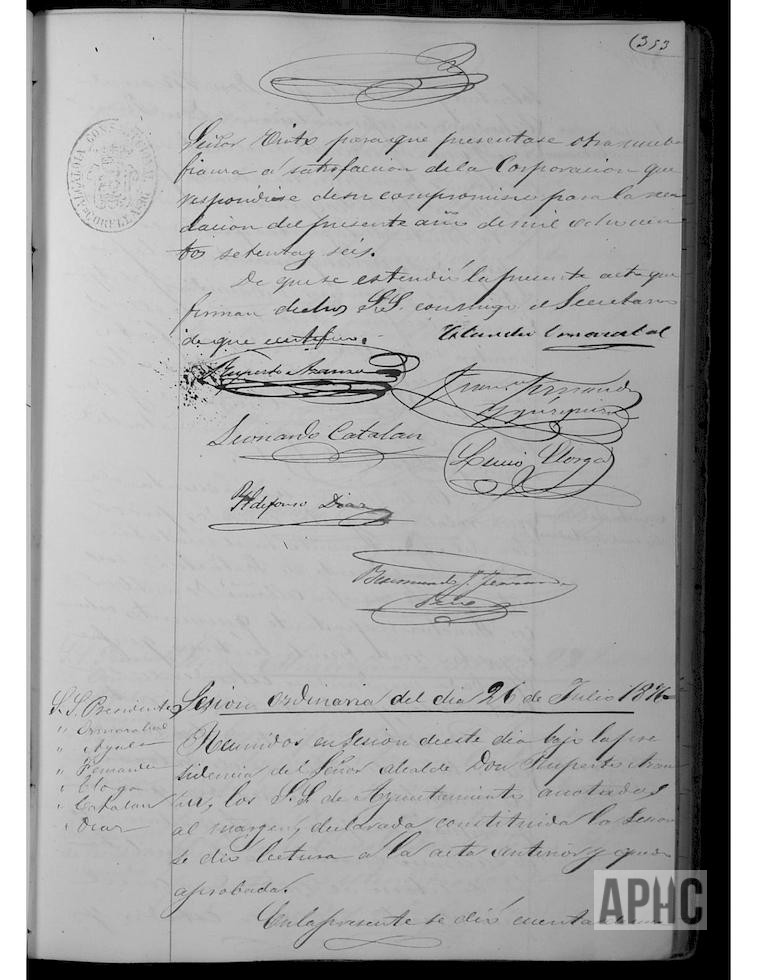 (353
ALCALDIA CONSTITUCIONAL DE CORELLA
Señor para que presentase otra nueva
fianza á satisfacion de la Corporacion que
respondiese de su compromiso para la recau
dacion del presente año de mil ochocien
tos setenta y seis.
De que se estendió la presente acta que
firman dichos S.S. conmigo el Secretario
de que certifico.
Ruperto
Leonardo Catalan
Ildefonso Diaz
Sesion ordinaria del dia 26 de Julio 1876
S.S. Presidente
" Ayala
" Fernandez
" Catalan
" Diaz
Reunidos en sesion de este dia bajo la pre
sidencia del Señor Alcalde Don Ruperto
los S.S. de Ayuntamiento anotados
al margen, declarada constituida la Sesion
se dió lectura á la acta anterior y quedó
aprobada.
En la presente se dió cuenta
APHC